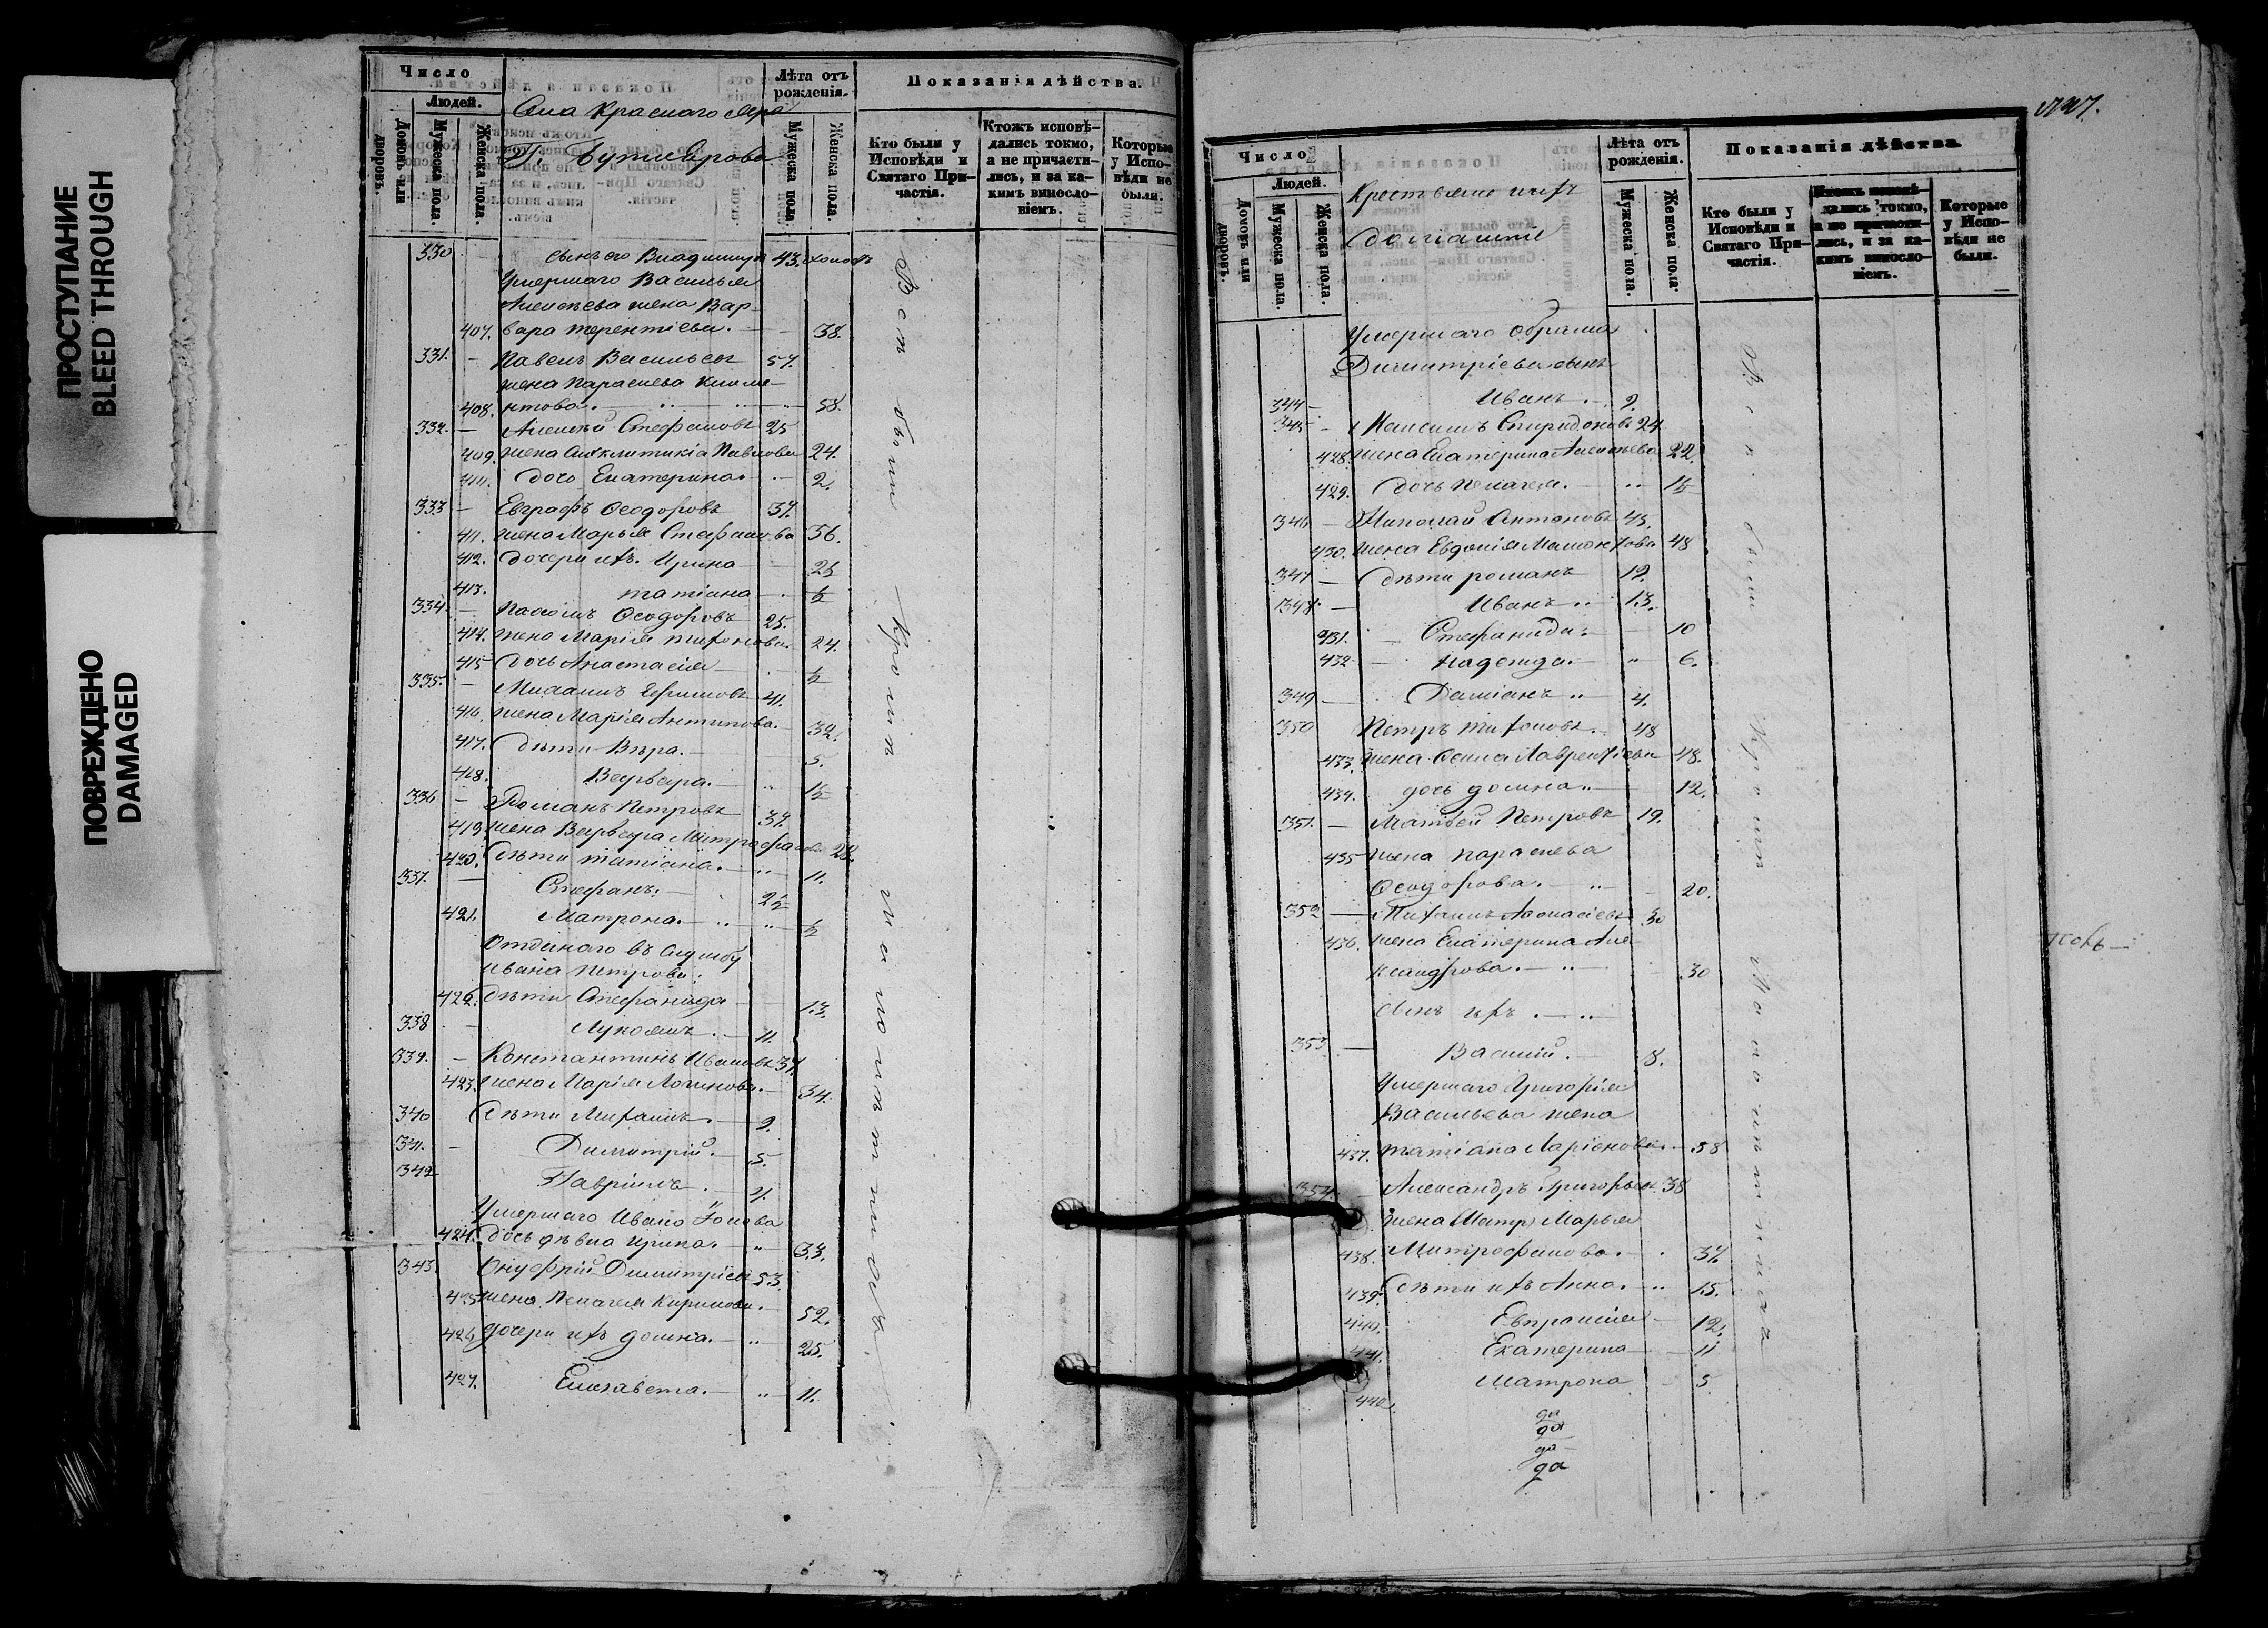 ПРОСТУПАНИЕ
BLEED THROUGH
ПОВРЕЖДЕНО
DAMAGED
Число
Людей.
Домовъ или дворовъ.
Мужеска пола.
Женска пола.
Села Краснаго Яра
Г. Бутлерова
Лѣта отъ рожденія.
Мужеска пола.
Женска пола.
Показанія дѣйства.
Кто были у Исповѣди и Святаго Причастія.
Ктожъ исповѣдались токмо, а не причастились, и за какимъ винословіемъ.
Которые у Исповѣди не были.
330 сынъ его Владимиръ 43. холостъ
Умершаго Василья
Алексѣева жена Вар-
407. вара Терентіева. 38.
331. – Павелъ Васильевъ 57.
жена Параскева Климе-
408. нтова. 58.
332. – Алексѣй Стефановъ 25
409. жена Синклитикія Павлова 24.
410. дочь Екатерина. 2.
333 – Евграфъ Ѳеодоровъ 37.
411. жена Марья Стефанова 36.
412. дочери ихъ Ирина 2½
413. Татіана ½
334. – Ѳеодоровъ 25.
414. жена Марія Тихонова. 24.
415 дочь Анастасія ½
335. – Михаилъ Ефимовъ 41.
416. жена Марія Антипова. 32.
417. дѣти Вѣра. 5.
418. Варвара. 1½
336 – Романъ Петровъ 37.
419. жена Варвара Митрофанова 28.
420. дѣти Татіана. 11.
337. – Стефанъ. 2½
421. Матрона. ½
Отданаго въ службу
Ивана Петрова.
422. дѣти Стефанида 13.
338 – Лукоянъ. 11.
339. – Константинъ Ивановъ 37.
423. жена Марія Логинова. 34.
340 дѣти Михаилъ. 9.
341. – Димитрій. 5.
342 Гавріилъ. 4.
Умершаго Ивана
424. дочь дѣвка Ирина. 33.
343. Онуфрій Димитріевъ 53.
425 жена Пелагея Кирилова. 52.
426 дочери ихъ Домна. 25.
427. Елисавета. 11.
Всѣ были Кромѣ малолѣтнихъ.
Число
Людей.
Домовъ или дворовъ.
Мужеска пола.
Женска пола.
Крестьяне ихъ
домашніе
Лѣта отъ рожденія.
Мужеска пола.
Женска пола.
Показанія дѣйства.
Кто были у Исповѣди и Святаго Причастія.
Ктожъ исповѣдались токмо, а не причастились, и за какимъ винословіемъ.
Которые у Исповѣди не были.
Умершаго
Димитріева сынъ
344 – Иванъ. 9.
345 – Максимъ Спиридоновъ 24
428. жена Екатерина Алексѣева 22.
429. дочь Пелагея. 1½
346 – Николай Антоновъ 45.
430. жена Евдокія 48
347 – дѣти Романъ 19.
348. – Иванъ 13.
431. – Стефанида. 10
432 – Надежда. 6.
349 – Даміанъ 4.
350 Петръ Тихоновъ. 48
433. жена Ѳекла Лаврентіева 48.
434. дочь Домна 12.
351. – Матвей Петровъ 19.
435 жена Параскева
Ѳеодорова. 20.
352 – Михаилъ Аѳонасіевъ 30
436. жена Екатерина Але-
ксандрова. 30
сынъ ихъ
353 – Василій. 8.
Умершаго Григорія
Васильева жена
437. Татіана Ларіонова. 58
354 Александръ Григорьевъ 38
жена (Матр) Марья
438. Митрофанова. 37.
439. дѣти ихъ Анна. 15.
440. Евпраксія 12.
441. Екатерина 11
442. Матрона 5
да
да
да
да
Всѣ были Кромѣ Малолѣтнихъ